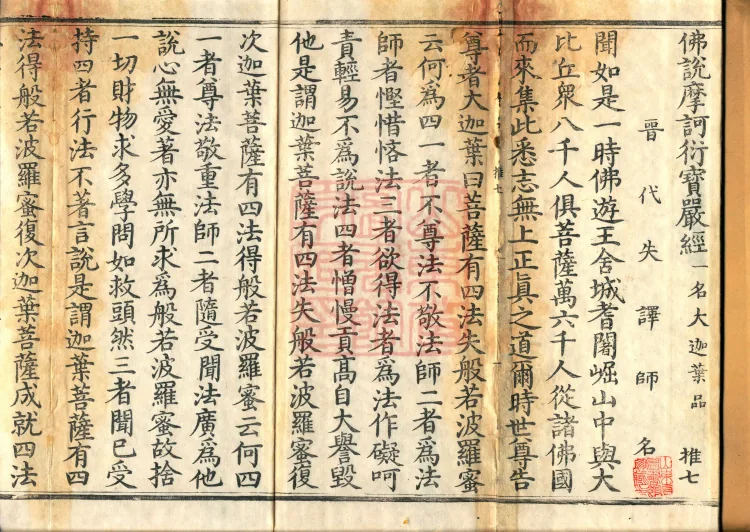 佛說摩訶衍寶嚴經一名大迦葉品 推七
晉代失譯師名
聞如是一時佛遊王舍城耆闍崛山中與大
比丘眾八千人俱菩薩萬六千人從諸佛國
而來集此悉志無上正真之道爾時世尊告
尊者大迦葉曰菩薩有四法失般若波羅蜜
推七
云何為四一者不尊法不敬法師二者為法
師者慳惜悋法三者欲得法者為法作礙呵
責輕易不為說法四者憎慢貢高自大譽毀
他是謂迦葉菩薩有四法失般若波羅蜜復
次迦葉菩薩有四法得般若波羅蜜云何四
一者尊法敬重法師二者隨受聞法廣為他
說心無愛著亦無所求為般若波羅蜜故捨
一切財物求多學問如救頭然三者聞已受
持四者行法不著言說是謂迦葉菩薩有四
法得般若波羅蜜復次迦葉菩薩成就四法